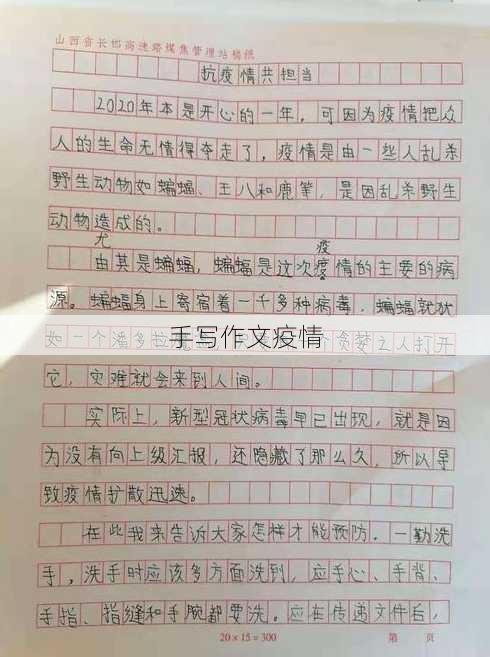 山西省长邯高速路煤焦管理站稿纸
抗疫情共担当
2020年本是开心的一年，可因为疫情把众
人的生命无情得夺走了，疫情是由一些人乱杀
野生动物如蝙蝠、王八和鹿掌，是因乱杀野生
动物造成的。
尤 疫
由其是蝙蝠，蝙蝠是这次疫情的主要的病
源。蝙蝠身上寄宿着一千多种病毒，蝙蝠就犹
如一个潘多拉 手写作文疫情 个贪婪之人打开
它，灾难就会来到人间。
实际上，新型冠状病毒早已出现，就是因
为没有向上级汇报，还隐藏了那么久，所以导
致疫情扩散迅速。
在此我来告诉大家怎样才能预防．一勤洗
手，洗手时应该多方面洗到，应手心、手背、
手指、指缝和手腕都要洗。应在传递文件后，
20×15=300 第 页